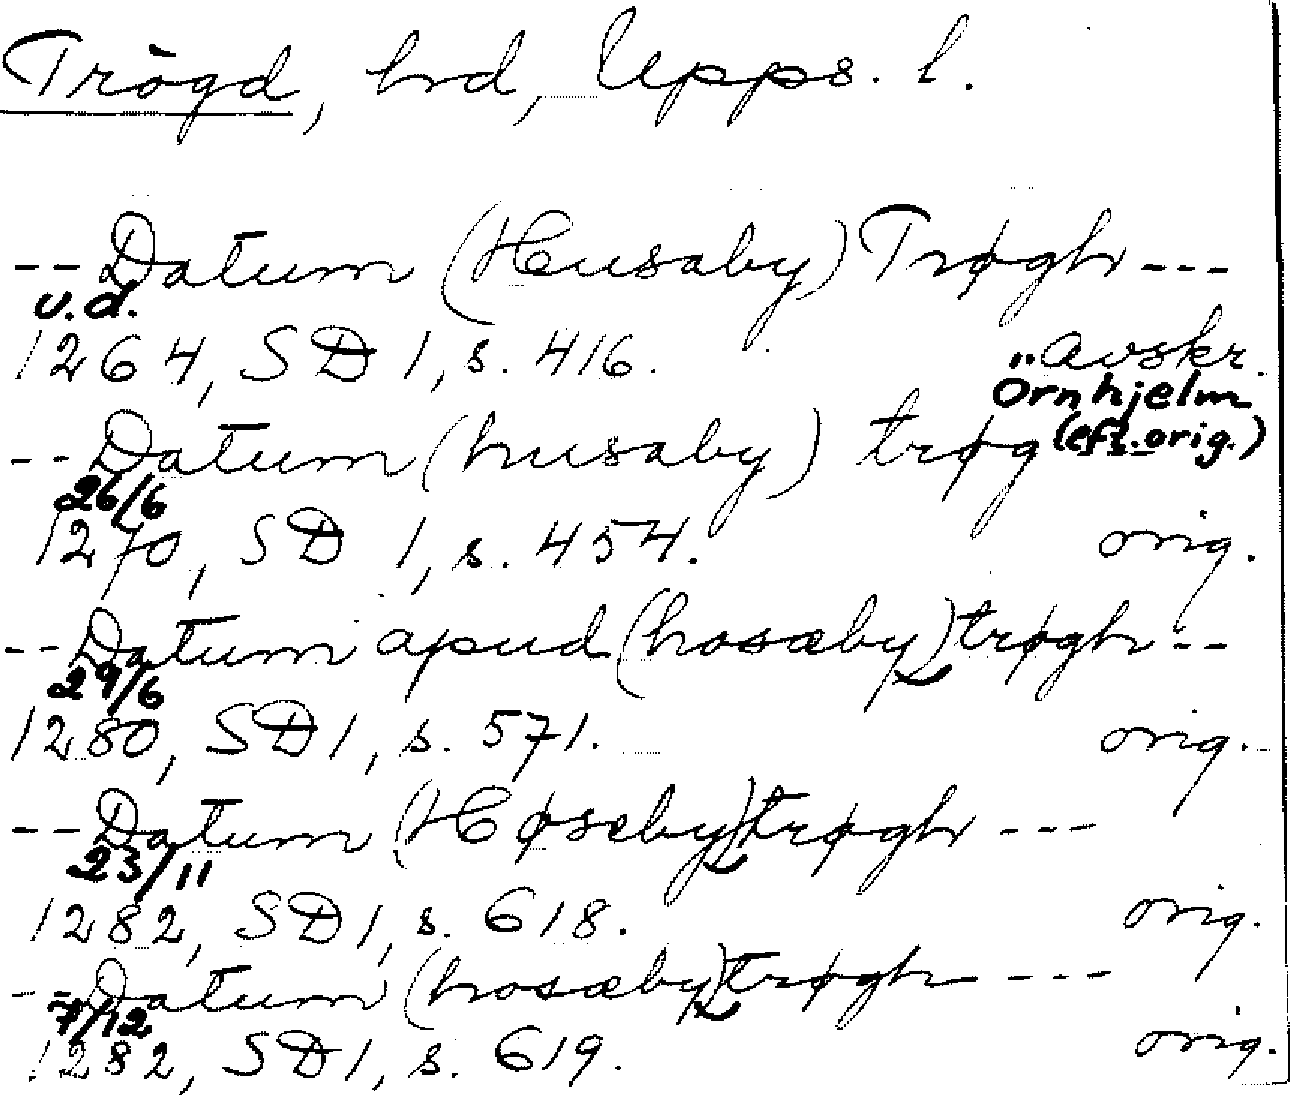 Trögd, hrd, Upps. l.
-- Datum (Husaby) Trøgh ---
u.d.
1264, SD 1, s. 416. "avskr.
Örnhjelm
(eft. orig.)
-- Datum (husaby) trøg
26/6
1270, SD 1, s. 454. orig.
-- Datum apud (hosæby) trøgh --
29/6
1280, SD 1, s. 571. orig.
-- Datum (Høsæby) trøgh ---
23/11
1282, SD 1, s. 618. orig.
-- Datum (hosæby) trøgh ---
7/12
1282, SD 1, s. 619. orig.